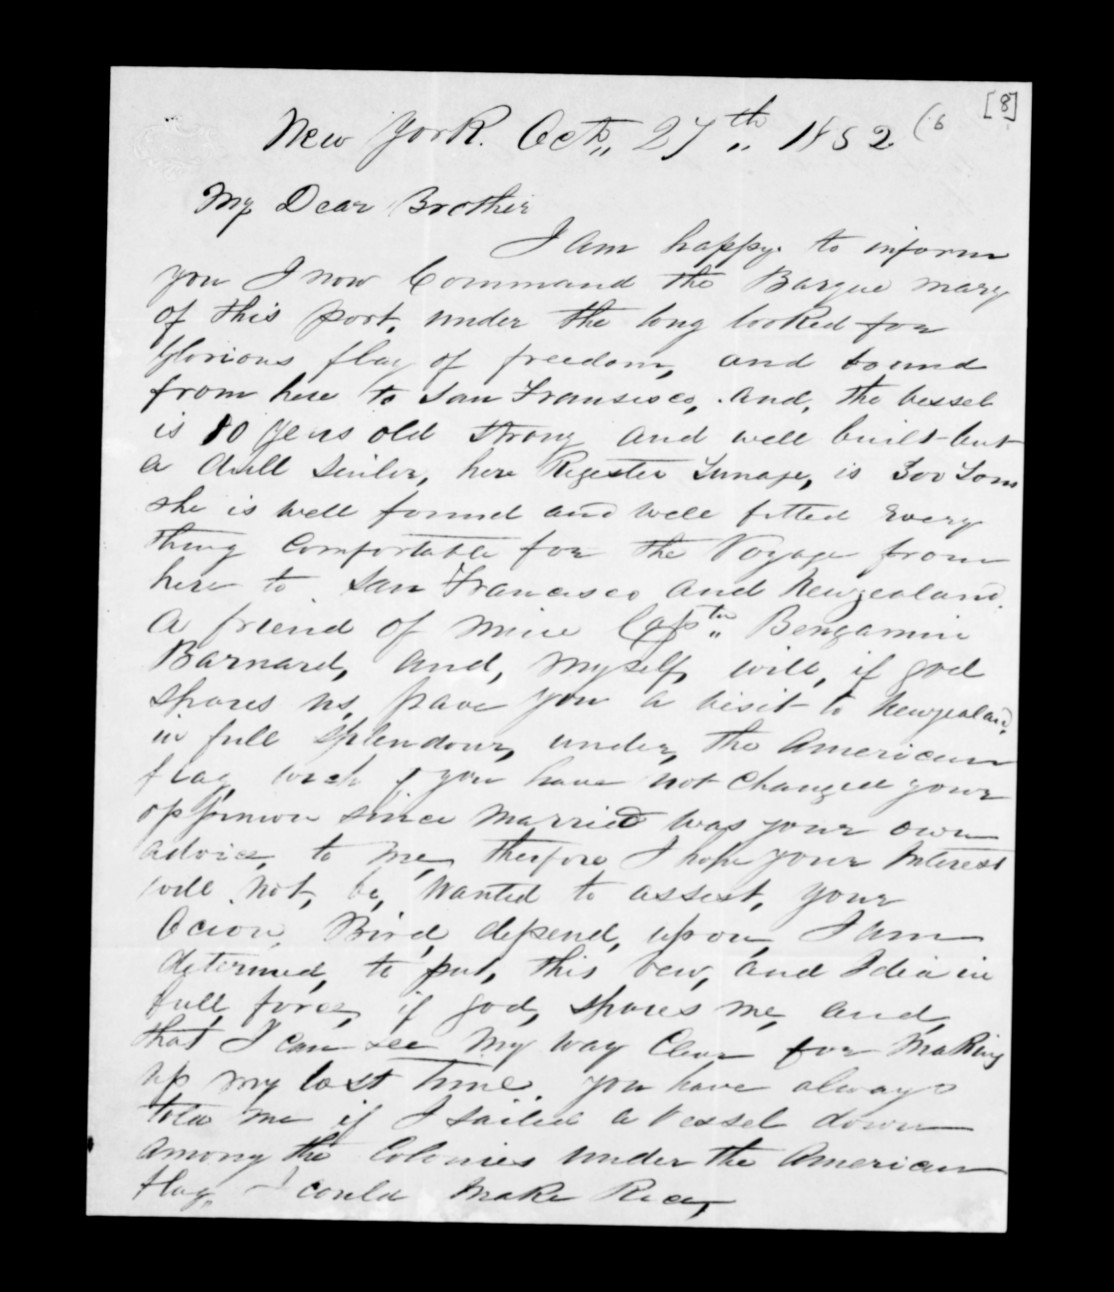 [8]
New York. Oct,, 27th,, 1852. (6
My Dear Brother
I am happy. to inform
you I now Command the Barque mary
of this port, under the long looked for
Glorious flag of freedom, and bound
from here to San Fransisco, and, the vessel
is 10 years old strong and well built but
a dull sailer, here Regester Tunage, is 300 Tons
she is well found and well fitted every
thing comfortable for the Voyage from
here to San Francisco and Newzealand,
A friend of mine Captn,, Bengamin
Barnard, and, myself, will, if god
spares us, pave you a visit to Newzealand,
in full splendour, under, the American
flag, if you have not changed your
oppinion since married was your own
advice, to me, therfore I hope your interest
will not, be, wanted to assest, your
Ocion, Bird, depend, upon, I am
determed, to put, this vew, and Idia in
full force, if god, spares me, and,
that I can see my way Clear for Making
up my lost time. you have always
told me if I sailed a Vessel down
among the Colonies under the American
flag,, I could make Rice,